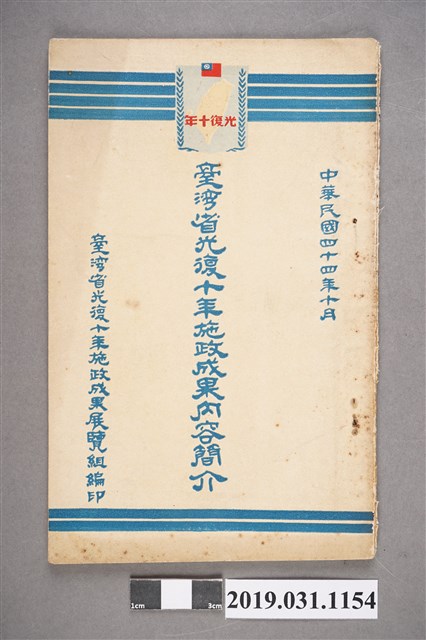 光復十年
中華民國四十四年十月
臺灣省光復十年施政成果內容簡介
臺灣省光復十年施政成果展覽組編印
1cm
3cm
2019.031.1154